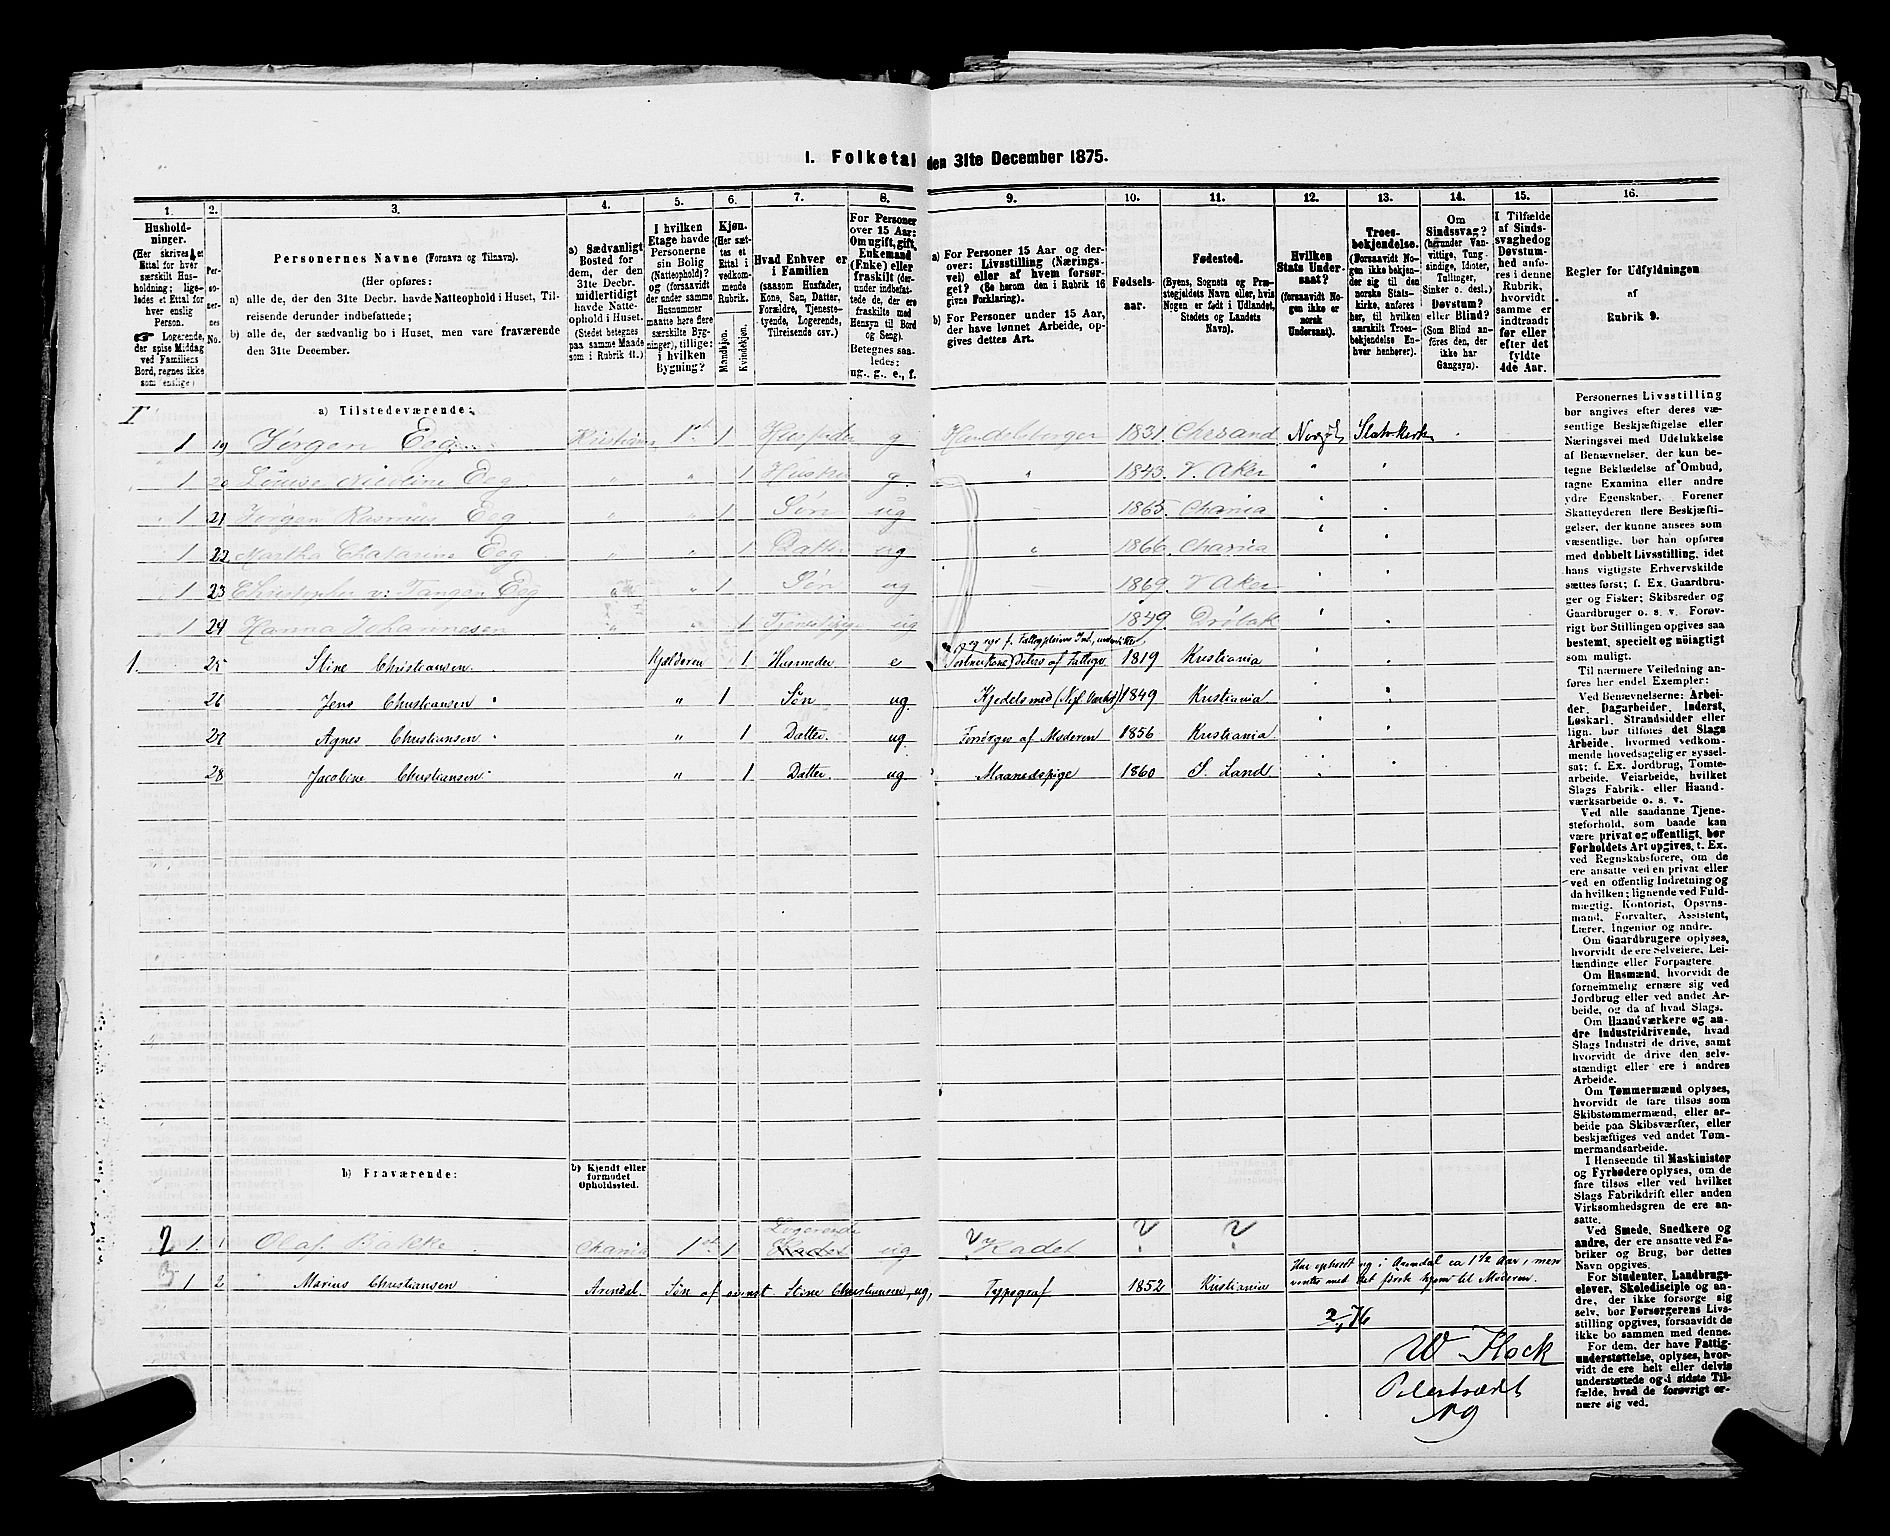 1. Folketal den 31te December 1875.
1. 2. 3. 4. 5. 6. 7. 8. 9. 10. 11. 12. 13. 14. 15. 16.
Hushold-
ninger.
(Her skrives et
Ettal for hver
særskilt Hus-
holdning; lige-
ledes et Ettal for
hver enslig
Person.
☞ Logerende,
der spise Middag
ved Familiens
Bord, regnes ikke
som enslige)
Per-
so-
ner-
nes
No.
Personernes Navne (Fornavn og Tilnavn).
(Her opføres:
a) alle de, der den 31te Decbr. havde Natteophold i Huset, Til-
reisende derunder indbefattede;
b) alle de, der sædvanlig bo i Huset, men vare fraværende
den 31te December.
a) Sædvanligt
Bosted for
dem, der den
31te Decbr.
midlertidigt
havde Natte-
ophold i Huset.
(Stedet betegnes
paa samme Maade
som i Rubrik 11.)
I hvilken
Etage havde
Personerne
sin Bolig
(Natteophold)?
og (forsaavidt
der under samme
Husnummer
maatte høre flere
særskilte Byg-
ninger), tillige:
i hvilken
Bygning?
Kjøn.
(Her sæt-
tes et
Ettal i
vedkom-
mende
Rubrik.
Mandkjøn.
Kvindekjøn.
Hvad Enhver er
i Familien
(saasom Husfader,
Kone, Søn, Datter,
Forældre, Tjeneste-
tyende, Logerende,
Tilreisende osv.)
For Personer
over 15 Aar:
Om ugift, gift,
Enkemand
(Enke) eller
fraskilt (der-
under indbefat-
tede de, der ere
fraskilte med
Hensyn til Bord
og Seng).
Betegnes saa-
ledes:
ug., g., e., f.
a) For Personer 15 Aar og der-
over: Livsstilling (Nærings-
vei) eller af hvem forsør-
get? (Se herom den i Rubrik 16
givne Forklaring).
b) For Personer under 15 Aar,
der have lønnet Arbeide, op-
gives dettes Art.
Fødsels-
aar.
Fødested.
(Byens, Sognets og Præ-
stegjeldets Navn eller, hvis
Nogen er født i Udlandet,
Stedets og Landets
Navn).
Hvilken
Stats Under-
saat?
(forsaavidt No-
gen ikke er
norsk
Undersaat).
Troes-
bekjendelse.
(Forsaavidt No-
gen ikke bekjen-
der sig til den
norske Stats-
kirke, anføres
her, til hvilken
særskilt Troes-
bekjendelse En-
hver henhører).
Om
Sindssvag?
(herunder Van-
vittige, Tung-
sindige, Idioter,
Tullinger,
Sinker o. desl.)
Døvstum?
eller Blind?
(Som Blind an-
føres den, der
ikke har
Gangsyn).
I Tilfælde
af Sinds-
svaghed og
Døvstum-
hed anfø-
res i denne
Rubrik,
hvorvidt
samme er
indtraadt
før eller
efter det
fyldte
4de Aar.
Regler for Udfyldningen
af
Rubrik 9.
a) Tilstedeværende:
1 19 Jørgen Eeg Kristiania 1st 1 Husfader g Handelsborger 1831 Chrsand Norge Statskirke
1 20 Louise Nicoline Eeg " " 1 g " 1843 V. Aker " "
1 21 Jørgen Rasmus Eeg " " 1 Søn ug 1865 Chania " "
1 22 Martha Chatarine Eeg " " 1 Datter ug " 1866 Chania " "
1 23 Christopher v: Tangen Eeg " 1 Søn ug 1869 V Aker " "
1 24 Hanna Johannesen " " 1 Tjenestepige ug 1849 Drøbak " "
1. 25 Stine Christiansen Kjælderen 1 Husmoder e 1819 Kristiania " "
26 Jens Christiansen " 1 Søn ug Kjedelsmed 1849 Kristiania " "
27 Agnes Christiansen " 1 Datter ug Forsørges af Moderen 1856 Kristiania " "
28 Jacobine Christiansen " 1 Datter ug Maanedspige 1860 S. Land " "
b) Fraværende:
b) Kjendt eller
formodet
Opholdssted.
Logerende
2 1. 1 Olaf Bakke Chania 1st 1 Kadet ug ? Kadet ? ?
3 1 2 Marius Christiansen Arendal Søn af Stine Christiansen, ug, Typograf 1852 Kristiania
Har opholdt sig i Arendal ca 1 1/2 Aar, men
ventes med det første hjem til Moderen.
2/1 76
W Flock
Pilestrædet
Personernes Livsstilling
bør angives efter deres væ-
sentlige Beskjæftigelse eller
Næringsvei med Udelukkelse
af Benævnelser, der kun be-
tegne Beklædelse af Ombud,
tagne Examina eller andre
ydre Egenskaber. Forener
Skatteyderen flere Beskjæfti-
gelser, der kunne ansees som
væsentlige, bør han opføres
med dobbelt Livsstilling, idet
hans vigtigste Erhvervskilde
sættes først; f. Ex. Gaardbru-
ger og Fisker; Skibsreder og
Gaardbruger o. s. v. Forøv-
rigt bør Stillingen opgives saa
bestemt, specielt og nøiagtigt
som muligt.
Til nærmere Veiledning an-
føres her endel Exempler:
Ved Benævnelserne: Arbei-
der, Dagarbeider, Inderst,
Løskarl, Strandsidder eller
lign. bør tilføies det Slags
Arbeide, hvormed vedkom-
mende hovedsagelig er syssel-
sat; f. Ex. Jordbrug, Tomte-
arbeide, Veiarbeide, hvilket
Slags Fabrik- eller Haand-
værksarbeide o. s. v.
Ved alle saadanne Tjene-
steforhold, som baade kan
være privat og offentligt, bør
Forholdets Art opgives, t. Ex.
ved Regnskabsførere, om de
ere ansatte ved en privat eller
ved en offentlig Indretning og
da hvilken; lignende ved Fuld-
mægtig, Kontorist, Opsyns-
mand, Forvalter, Assistent,
Lærer, Ingeniør og andre.
Om Gaardbrugere oplyses,
hvorvidt de ere Selveiere, Lei-
lændinge eller Forpagtere
Om Husmænd, hvorvidt de
fornemmelig ernære sig ved
Jordbrug eller ved andet Ar-
beide, og da af hvad Slags.
Om Haandværkere og an-
dre Industridrivende, hvad
Slags Industri de drive, samt
hvorvidt de drive den selv-
stændigt eller ere i andres
Arbeide.
Om Tømmermænd oplyses,
hvorvidt de fare tilsøs som
Skibstømmermænd, eller ar-
beide paa Skibsværfter, eller
beskjæftiges ved andet Tøm-
mermandsarbeide.
I Henseende til Maskinister
og Fyrbødere oplyses, om de
fare tilsøs eller ved hvilket
Slags Fabrikdrift eller anden
Virksomhedsgren de ere an-
satte.
Ved Smede, Snedkere og
andre, der ere ansatte ved Fa-
briker og Brug, bør dettes
Navn opgives.
For Studenter, Landbrugs-
elever, Skoledisciple og an-
dre, der ikke forsørge sig
selv, bør Forsørgerens Livs-
stilling opgives, forsaavidt de
ikke bo sammen med denne.
For dem, der have Fattig-
understøttelse, oplyses, hvor-
vidt de ere helt eller delvis
understøttede og i sidste Til-
fælde, hvad de forøvrigt er-
nære sig ved.